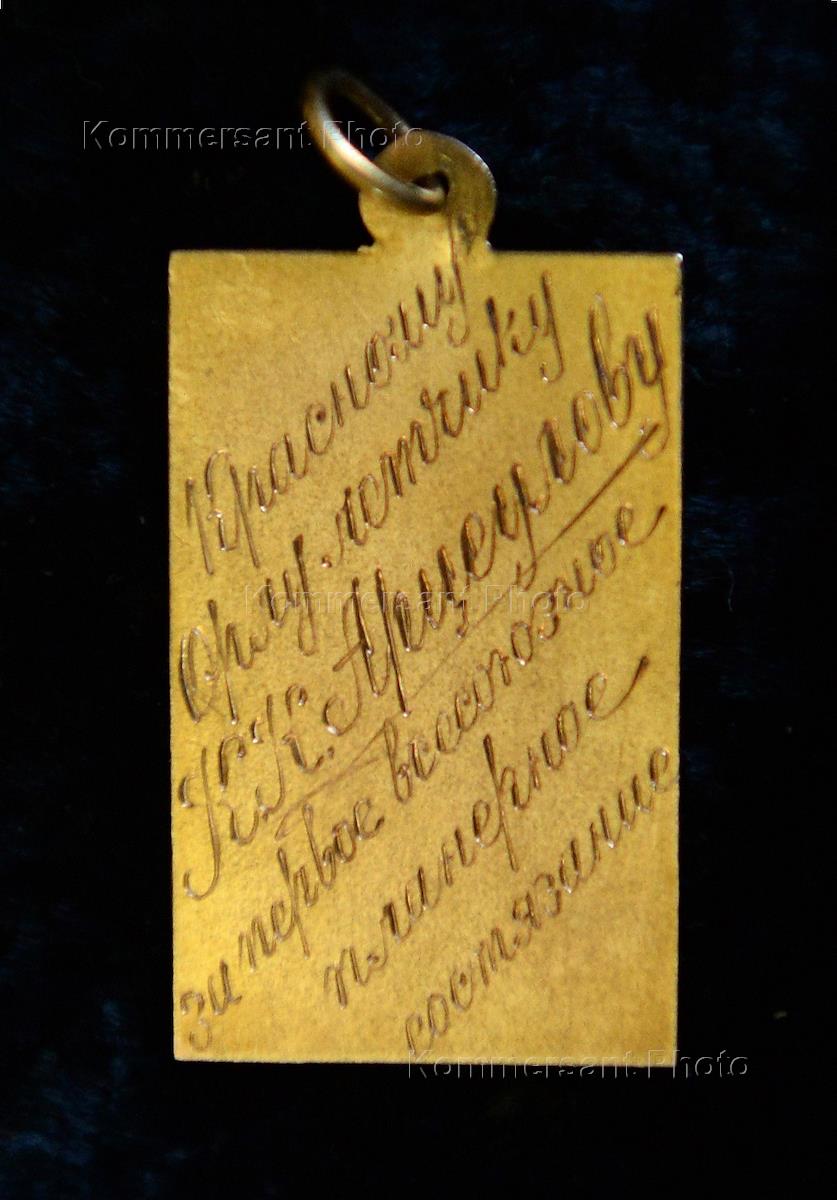 Kommersant Photo
Красному
орлу. летчику
К.К. Арцеулову
Kommersant Photo
за первое всесоюзное
планерное
состязание
Kommersant Photo